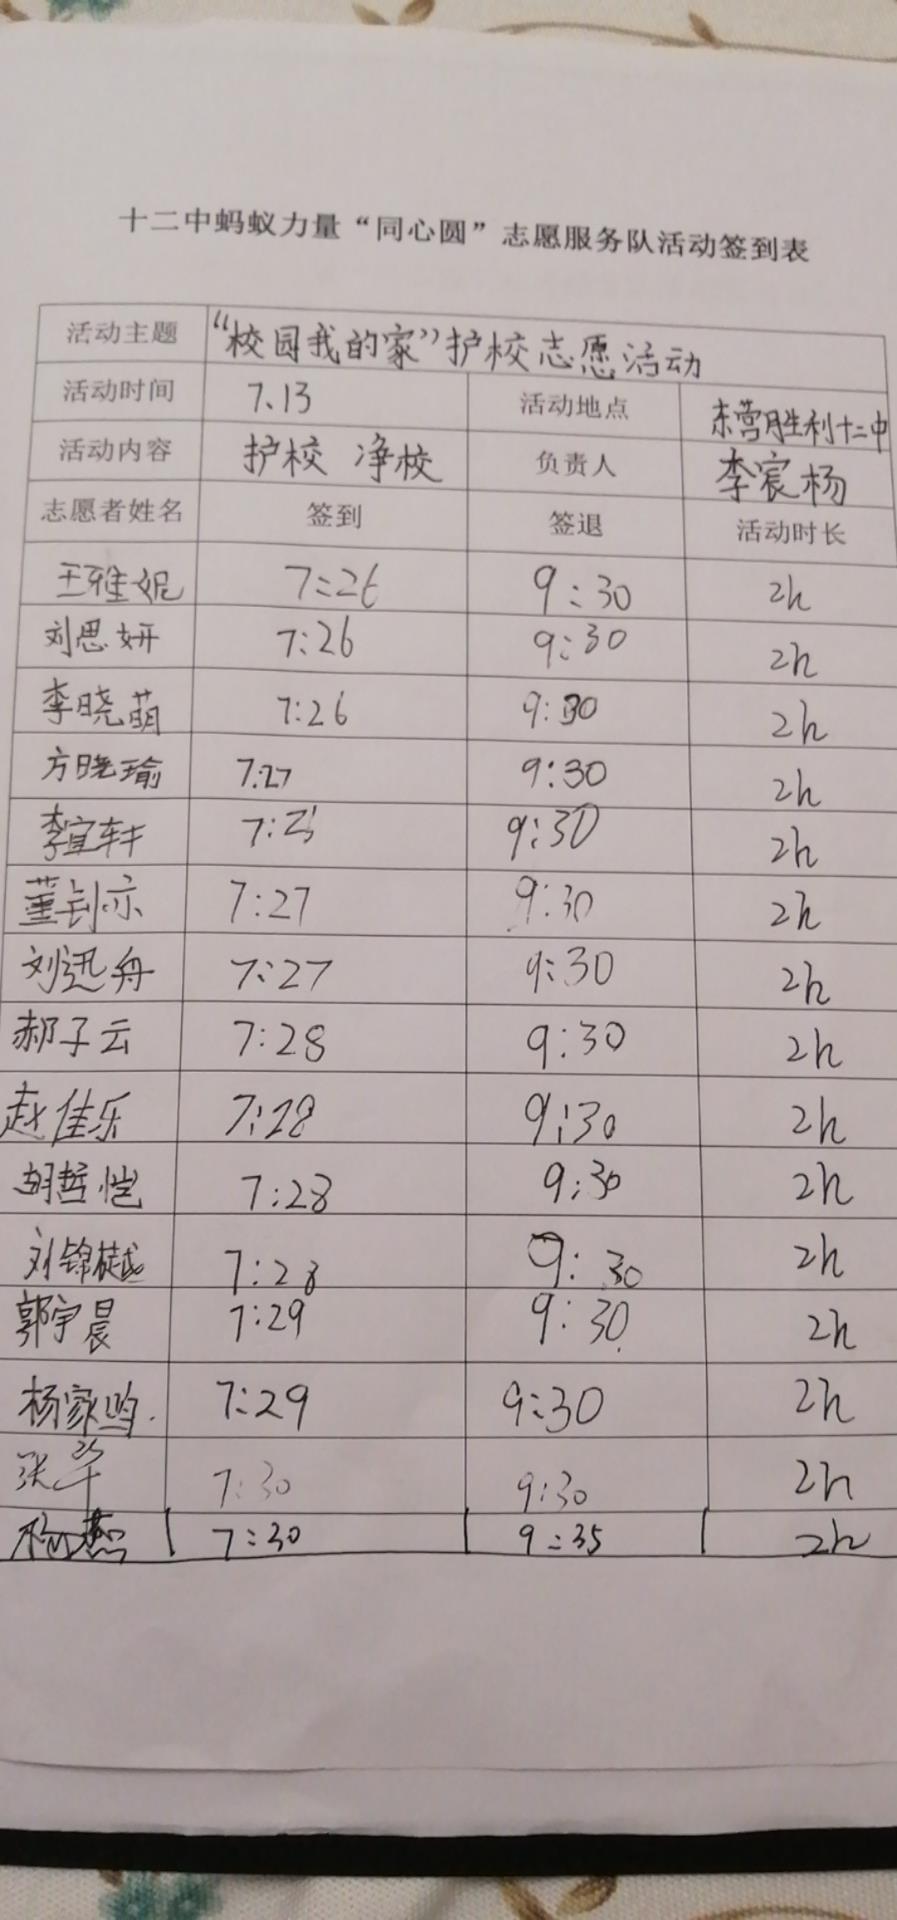 十二中蚂蚁力量“同心圆”志愿服务队活动签到表
活动主题 “校园我的家”护校志愿活动
活动时间 7.13 活动地点 东营胜利十二中
活动内容 护校 净校 负责人 李宸杨
志愿者姓名 签到 签退 活动时长
王雅妮 7:26 9:30 2h
刘思妍 7:26 9:30 2h
李晓萌 7:26 9:30 2h
方晓瑜 7:27 9:30 2h
李宜轩 7: 9:30 2h
董钊亦 7:27 9:30 2h
刘迅舟 7:27 9:30 2h
郝子云 7:28 9:30 2h
赵佳乐 7:28 9:30 2h
胡哲恺 7:28 9:30 2h
刘锦樾 7:28 9:30 2h
郭宇晨 7:29 9:30 2h
杨家鸣. 7:29 9:30 2h
张 7:30 9:30 2h
杨燕 7:30 9:35 2h